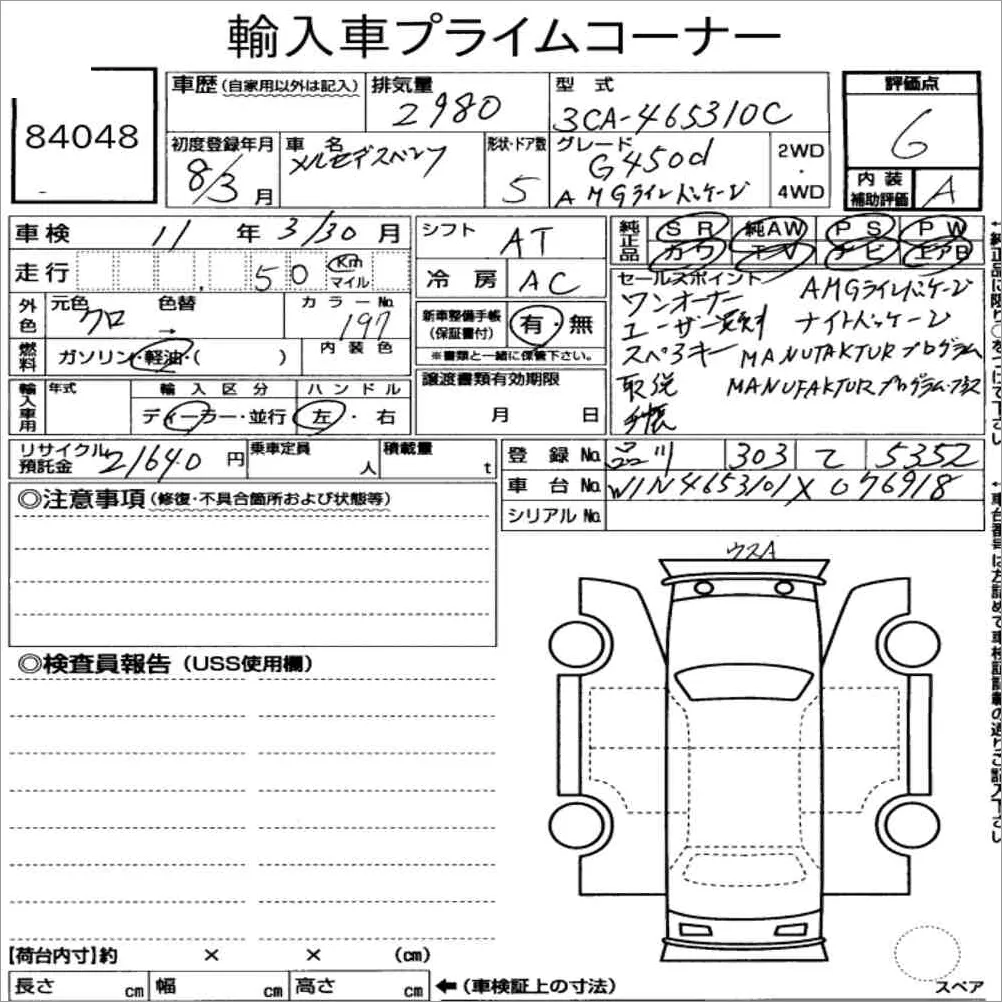 輸入車プライムコーナー
84048
車歴(自家用以外は記入)
排気量
2980
型式
3CA-465310C
評価点
6
初度登録年月
8/3月
車名
メルセデスベンツ
形状・ドア数
5
グレード
G450d
AMGラインパッケージ
2WD
・
4WD
内装
補助評価
A
車検 11年3/30月
走行 50 Km
マイル
シフト
AT
冷房 AC
純正品
SR 純AW PS PW
カワ TV ナビ エアB
外色
元色
クロ
色替
→
カラーNo.
197
燃料
ガソリン・軽油・( )
内装色
新車整備手帳
(保証書付)
有・無
※書類と一緒に保管下さい。
セールスポイント
ワンオーナー
ユーザー買取
スペアキー
取説
手帳
AMGラインパッケージ
ナイトパッケージ
MANUFAKTURプログラム
MANUFAKTURプログラム・プラス
輸入車用
年式
輸入区分
ディーラー・並行
ハンドル
左・右
譲渡書類有効期限
月 日
リサイクル
預託金
21640円
乗車定員
人
積載量
t
登録No. 品川 303 て 5352
車台No. W1N4653101X076918
シリアルNo.
◎注意事項(修復・不具合箇所および状態等)
◎検査員報告(USS使用欄)
ウスA
【荷台内寸】約 × × (cm)
長さ cm 幅 cm 高さ cm
←(車検証上の寸法)
スペア
←純正品に限り○をつけて下さい
←車台番号は左詰めで車検証記載の通りご記入下さい